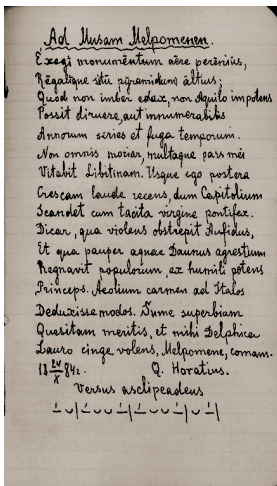 Ad Musam Melpomenen.
Exegi monumentum aere perenius,
Regalique situ pyramidum altius;
Quod non imber edax, non Aquilo impotens
Possit diruere, aut innumerabilis
Annorum series et fuga temporum.
Non omnis moriar, multaque pars mei
Vitabit Libitinam. Usque ego postera
Crescam laude recens, dum Capitolium
Scandet cum tacita virgine pontifex.
Dicar, qua violens obstrepit Aufidus,
Et qua pauper aquae Daunus agrestium
Regnavit populorum, ex humili potens
Princeps. Aeolium carmen ad Italos
Deduxisse modos. Sume superbiam
Quesitam meritis, et mihi Delphica
Lauro cinge volens, Melpomene, comam.
Q. Horatius.
Versus asclipeadeus